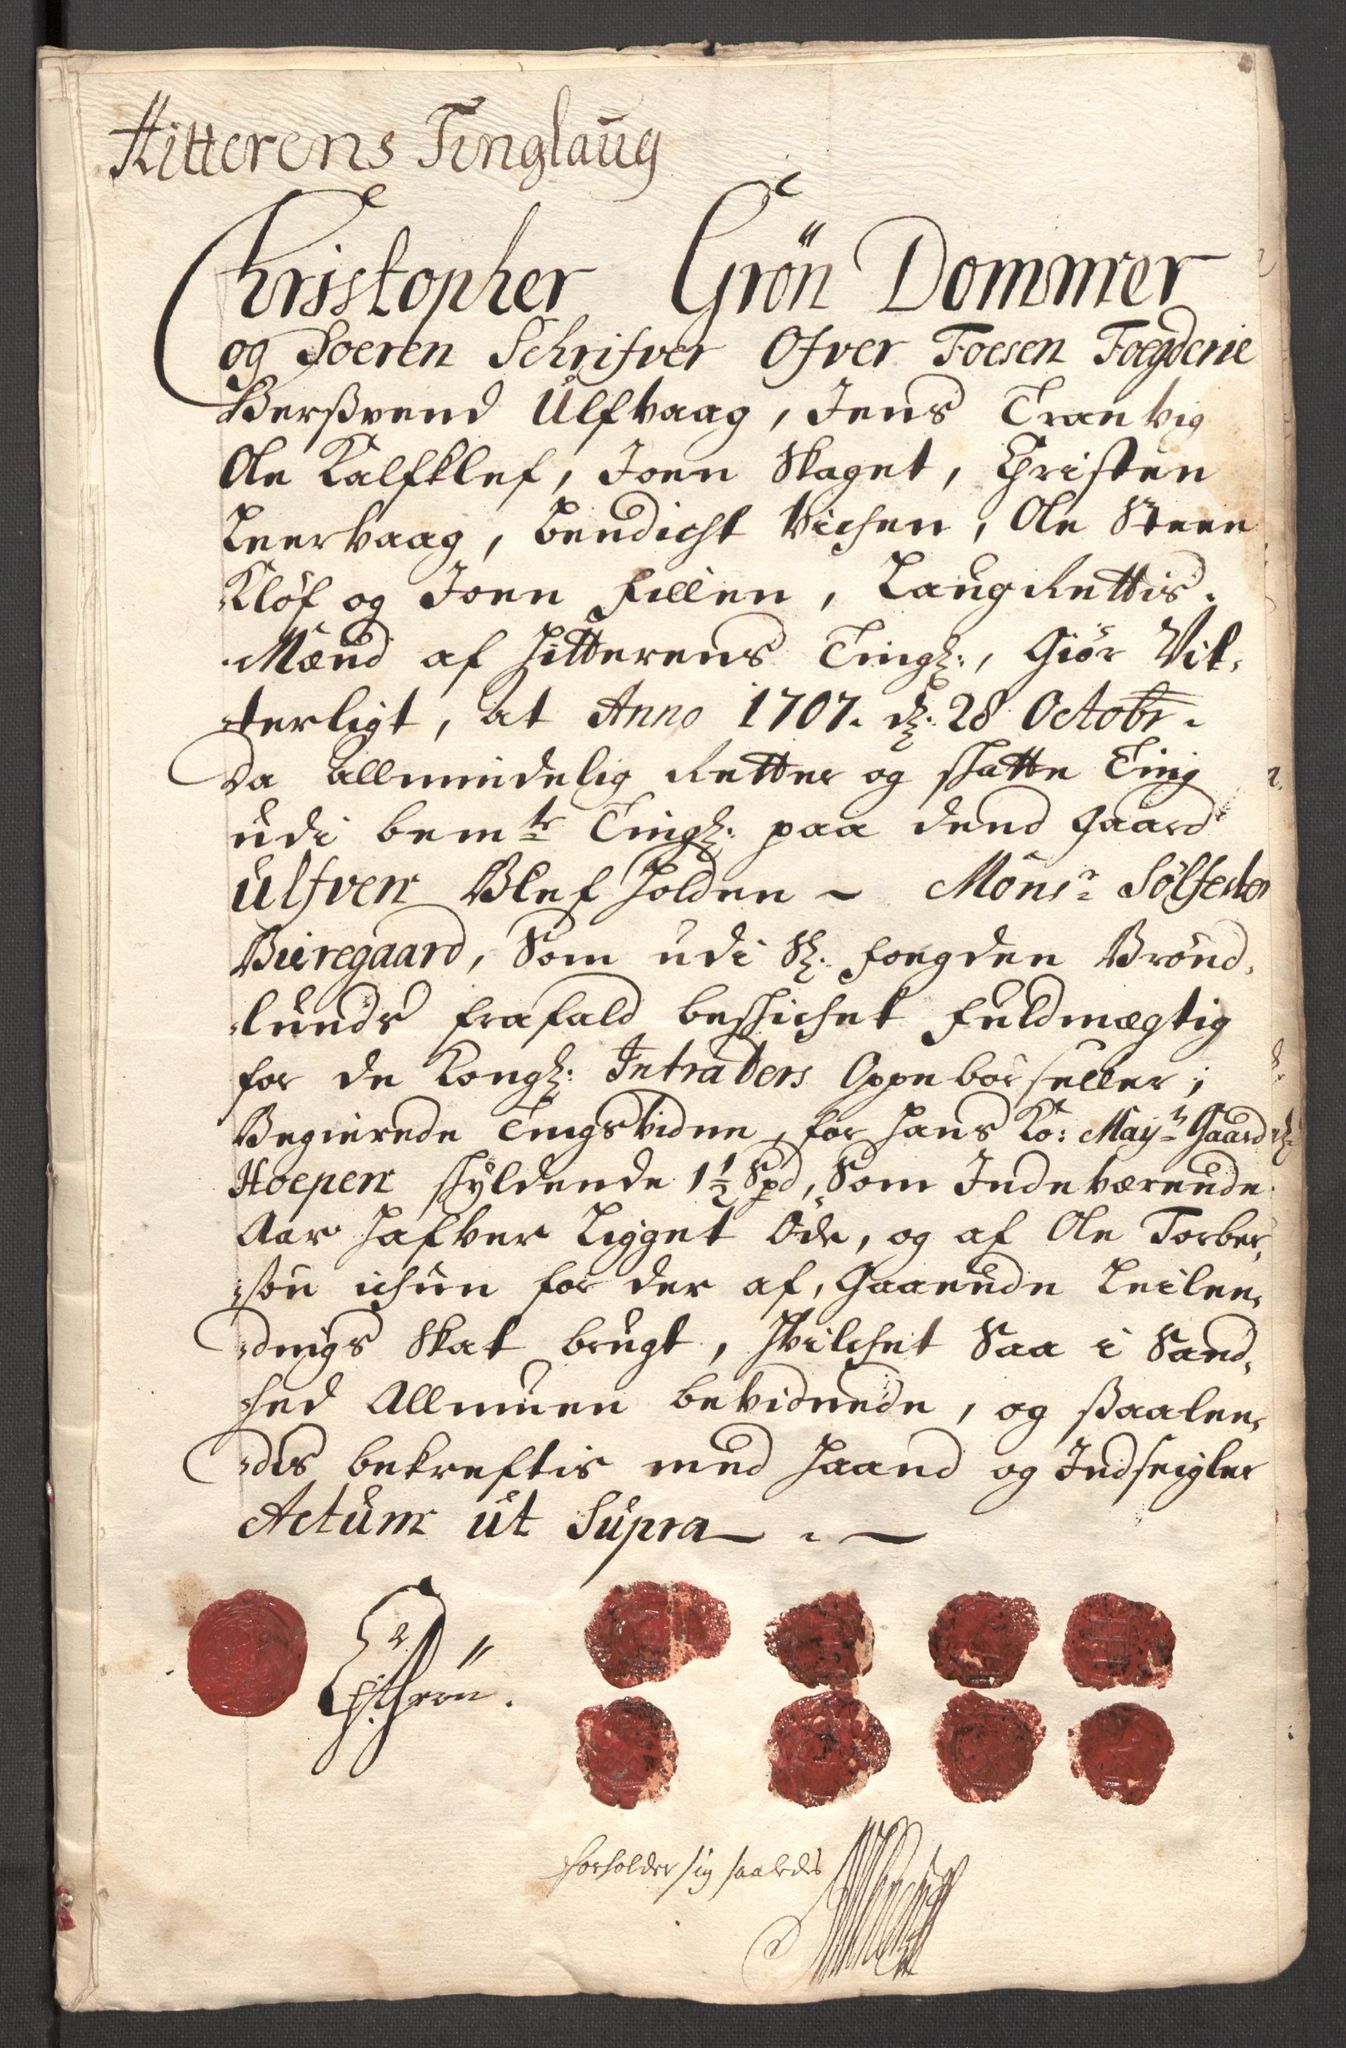 Hitterens Tinglaug
Christopher Grön Dommer
og Soeren Schrifver Ofver Foesen Foegderie
Berßvend Ulfvaag, Jens Tranvig
Ole Kalfklef, Joen Skaget, Christen
Leervaag, Bendicht Vichen, Ole Steen
Kløf og Joen Fillen, LaugRettis
Mænd af Hitterens Tingl:, Giör Vit-
terligt, at Anno 1707. d: 28 Octobr.
da allmindelig Retter og skatte Ting
udi bemte Tingl: paa dend Gaard
Ulfven Blef holden - Monsr Sölfester
Bieregaard, Som udi Sl: Foegden Brönd-
lunds frafald beskichet Fuldmægtig
for de Kongl: Intraders Oppebörseller;
Begierede Tingsvidne, for hans Ko: Mayts Gaard
Hoepen skyldende 1½ Spd, Som Indeværende
Aar hafver Ligget Öde, og af Ole Torber-
sön ichun for der af, Gaaende Leilen-
dings Skat brugt, Hvilchet Saa i Sand-
hed Allmuen bevidnede, og ßaalen-
des bekreftis med Haand og Indseigler
Actum ut Supra
Ch: Grön.
forholder sig saaledes